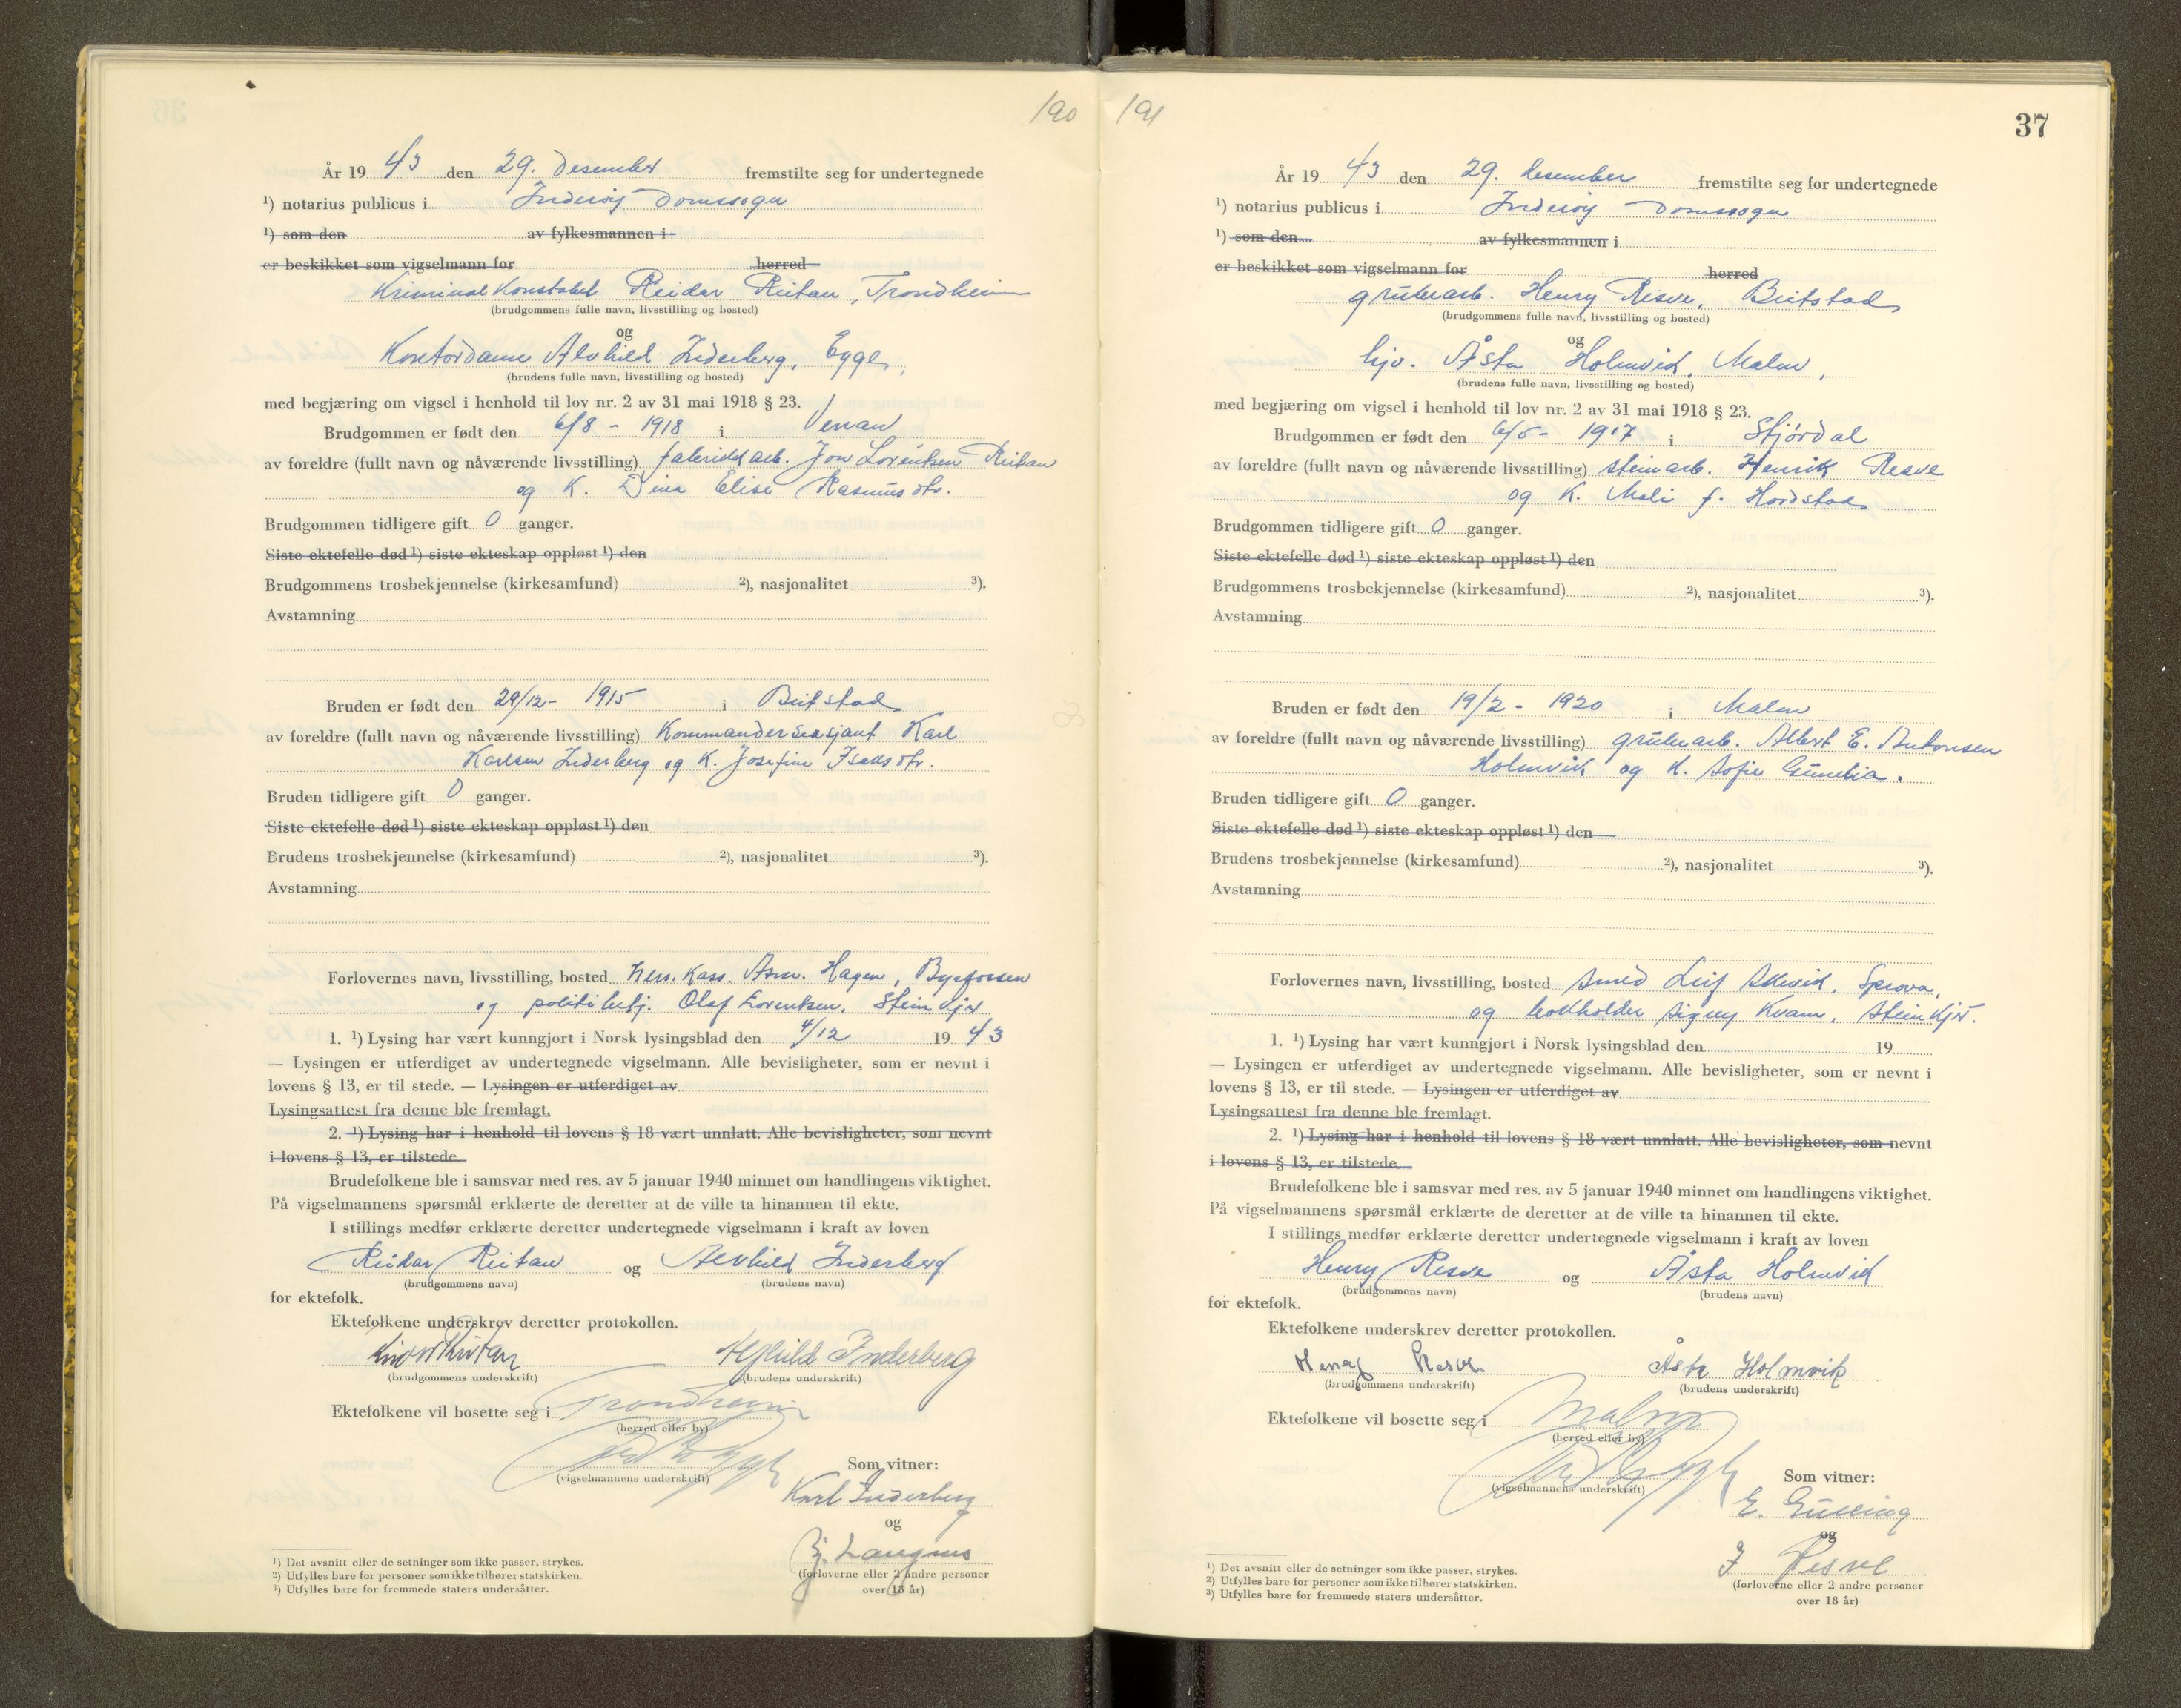 190
År 19 43 den 29. Desember fremstilte seg for undertegnede
¹) notarius publicus i Inderøy Domssogn
¹) som den av fylkesmannen i
er beskikket som vigselmann for herred
Kriminalkonstabel Reidar Reitan, Trondheim
(brudgommens fulle navn, livsstilling og bosted)
og
Kontordame Alvhild Inderberg, Egge,
(brudens fulle navn, livsstilling og bosted)
med begjæring om vigsel i henhold til lov nr. 2 av 31 mai 1918 § 23.
Brudgommen er født den 6/8 - 1918 i Verran
av foreldre (fullt navn og nåværende livsstilling) fabrikkarb. Jon Lorentsen Reitan
og K. Dina Elise Rasmusdtr.
Brudgommen tidligere gift 0 ganger.
Siste ektefelle død ¹) siste ekteskap oppløst ¹) den
Brudgommens trosbekjennelse (kirkesamfund) ²), nasjonalitet ³).
Avstamning
Bruden er født den 29/12- 1915 i Beitstad
av foreldre (fullt navn og nåværende livsstilling) Kommandersersjant Karl
Karlsen Inderberg og K. Josefine Isaksdtr.
Bruden tidligere gift 0 ganger.
Siste ektefelle død ¹) siste ekteskap oppløst ¹) den
Brudens trosbekjennelse (kirkesamfund) ²), nasjonalitet ³).
Avstamning
Forlovernes navn, livsstilling, bosted Herr. Kass. Asm. Hagen, Byafossen
og politibetj. Olaf Lorentsen, Steinkjer
1. ¹) Lysing har vært kunngjort i Norsk lysingsblad den 4/12 19 43
— Lysingen er utferdiget av undertegnede vigselmann. Alle bevisligheter, som er nevnt i
lovens § 13, er til stede. — Lysingen er utferdiget av
Lysingsattest fra denne ble fremlagt.
2. ¹) Lysing har i henhold til lovens § 18 vært unnlatt. Alle bevisligheter, som nevnt
i lovens § 13, er tilstede.
Brudefolkene ble i samsvar med res. av 5 januar 1940 minnet om handlingens viktighet.
På vigselmannens spørsmål erklærte de deretter at de ville ta hinannen til ekte.
I stillings medfør erklærte deretter undertegnede vigselmann i kraft av loven
Reidar Reitan og Alvhild Inderberg
(brudgommens navn) (brudens navn)
for ektefolk.
Ektefolkene underskrev deretter protokollen.
Reidar Reitan Alfhild Inderberg
(brudgommens underskrift) (brudens underskrift)
Ektefolkene vil bosette seg i Trondheim
(herred eller by)
(vigselmannens underskrift)
Som vitner:
Karl Inderberg
og
Bj. Langnes
(forloverne eller 2 andre personer
over 18 år)
¹) Det avsnitt eller de setninger som ikke passer, strykes.
²) Utfylles bare for personer som ikke tilhører statskirken.
³) Utfylles bare for fremmede staters undersåtter.
191
37
År 19 43 den 29. Desember fremstilte seg for undertegnede
¹) notarius publicus i Inderøy Domssogn
¹) som den av fylkesmannen i
er beskikket som vigselmann for herred
grubearb. Henry Resve, Beitstad
(brudgommens fulle navn, livsstilling og bosted)
og
hjv. Åsta Holmvik, Malm,
(brudens fulle navn, livsstilling og bosted)
med begjæring om vigsel i henhold til lov nr. 2 av 31 mai 1918 § 23.
Brudgommen er født den 6/5- 1917 i Stjørdal
av foreldre (fullt navn og nåværende livsstilling) steinarb. Henrik Resve
og K. Mali f. Hordstad
Brudgommen tidligere gift 0 ganger.
Siste ektefelle død ¹) siste ekteskap oppløst ¹) den
Brudgommens trosbekjennelse (kirkesamfund) ²), nasjonalitet ³).
Avstamning
Bruden er født den 19/2 - 1920 i Malm
av foreldre (fullt navn og nåværende livsstilling) grubearb. Albert E. Antonsen
Holmvik og K. Sofie
Bruden tidligere gift 0 ganger.
Siste ektefelle død ¹) siste ekteskap oppløst ¹) den
Brudens trosbekjennelse (kirkesamfund) ²), nasjonalitet ³).
Avstamning
Forlovernes navn, livsstilling, bosted smed Leif Sprova,
og bokholder Signy Kvam, Steinkjer.
1. ¹) Lysing har vært kunngjort i Norsk lysingsblad den 19
— Lysingen er utferdiget av undertegnede vigselmann. Alle bevisligheter, som er nevnt i
lovens § 13, er til stede. — Lysingen er utferdiget av
Lysingsattest fra denne ble fremlagt.
2. ¹) Lysing har i henhold til lovens § 18 vært unnlatt. Alle bevisligheter, som nevnt
i lovens § 13, er tilstede.
Brudefolkene ble i samsvar med res. av 5 januar 1940 minnet om handlingens viktighet.
På vigselmannens spørsmål erklærte de deretter at de ville ta hinannen til ekte.
I stillings medfør erklærte deretter undertegnede vigselmann i kraft av loven
Henry Resve og Åsta Holmvik
(brudgommens navn) (brudens navn)
for ektefolk.
Ektefolkene underskrev deretter protokollen.
Henry Resve Åsta Holmvik
(brudgommens underskrift) (brudens underskrift)
Ektefolkene vil bosette seg i Malm
(herred eller by)
(vigselmannens underskrift)
Som vitner:
E. Gulling
og
J Resve
(forloverne eller 2 andre personer
over 18 år)
¹) Det avsnitt eller de setninger som ikke passer, strykes.
²) Utfylles bare for personer som ikke tilhører statskirken.
³) Utfylles bare for fremmede staters undersåtter.